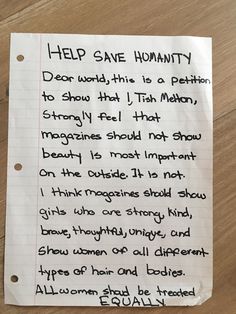 HELP SAVE HUMANITY
Dear world, this is a petition
to show that I, Tish Melton,
Strongly feel that
magazines should not show
beauty is most important
on the outside. It is not.
I think magazines should show
girls who are strong, kind,
brave, thoughtful, unique, and
show women of all different
types of hair and bodies.
ALL women should be treated
EQUALLY